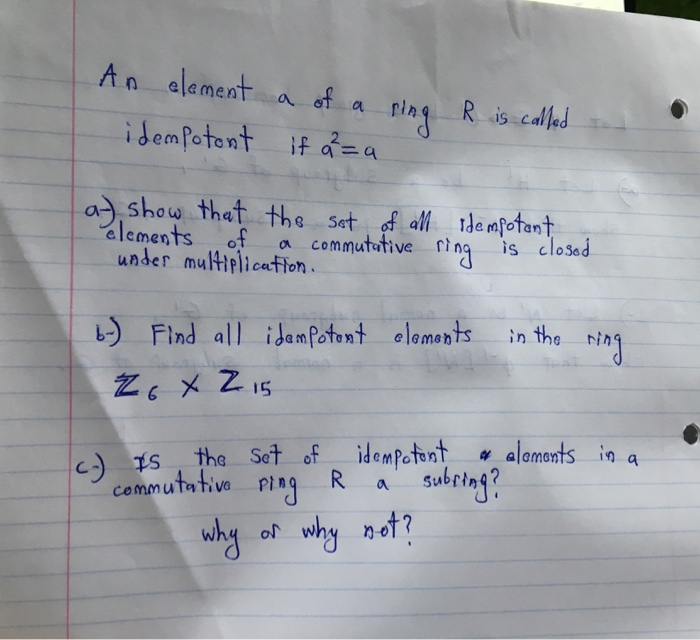 An element a of a ring R is called
idempotent if a²=a
a-) show that the set of all idempotent
elements of a commutative ring is closed
under multiplication.
b-) Find all idempotent elements in the ring
Z₆ × Z₁₅
c-) Is the set of idempotent elements in a
commutative ring R a subring?
why or why not?